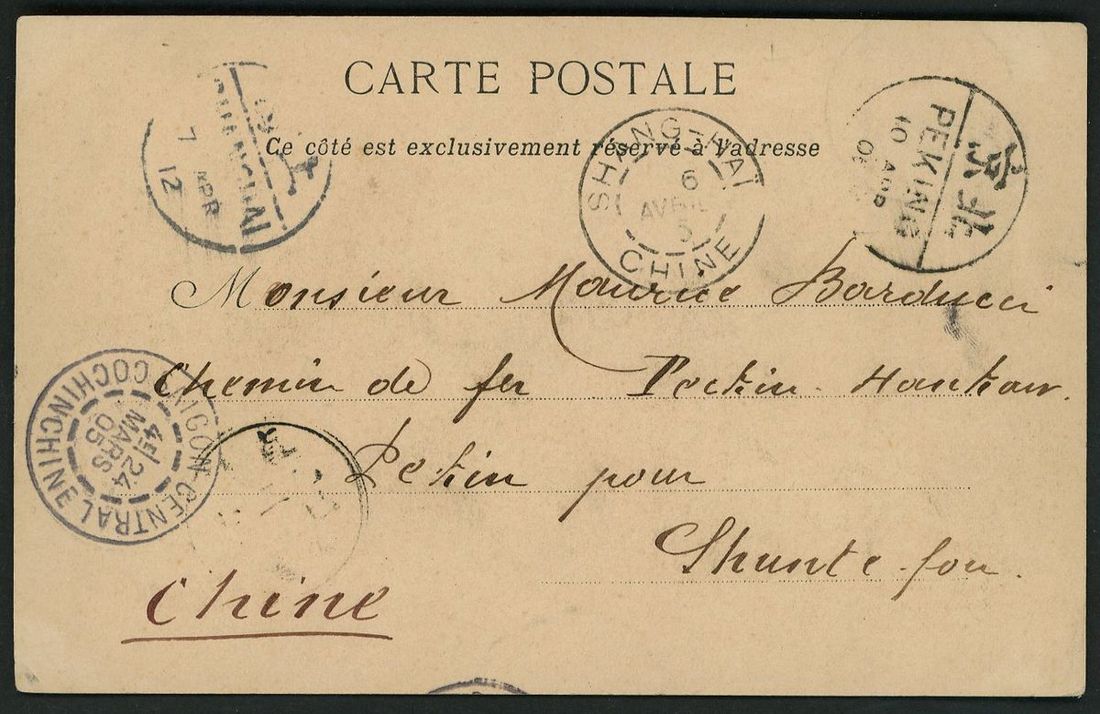 CARTE POSTALE
Ce côté est exclusivement réservé à l'adresse
7 APR
12
SHANG-HAÏ
6
AVRIL
5
CHINE
PEKING
10 APR
北京
Monsieur Maurice Barducci
Chemin de fer Peckin-Hankow
Pekin pour
Shunte fou.
Chine
SAIGON-CENTRAL
4E/24
MARS
05
COCHINCHINE